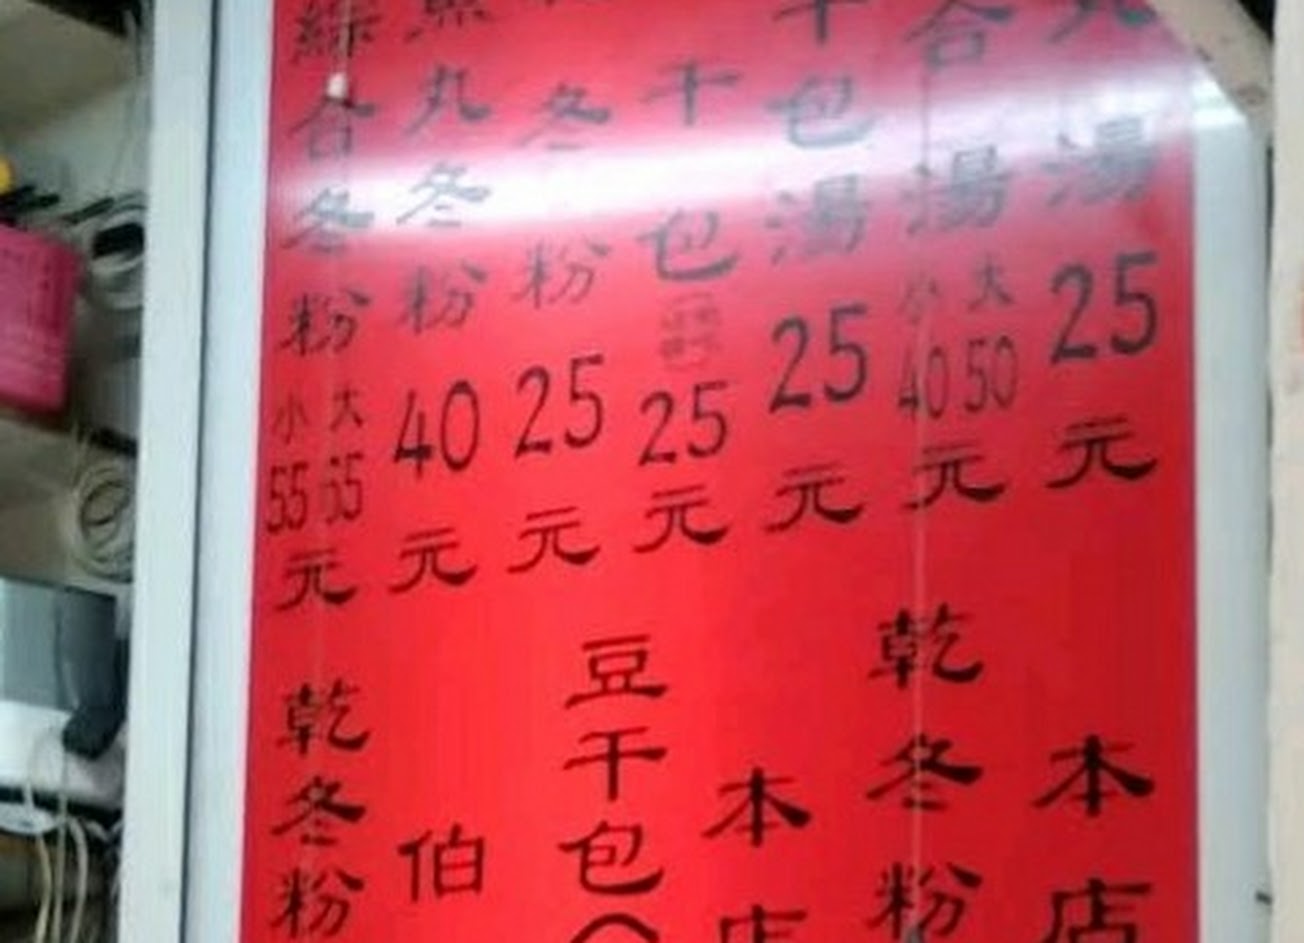 丸湯25元
合湯小40大50元
干包湯25元
干包25元
冬粉25元
魚丸冬粉40元
綜合冬粉小55大65元
本店
乾冬粉
本店
豆干包
伯
乾冬粉